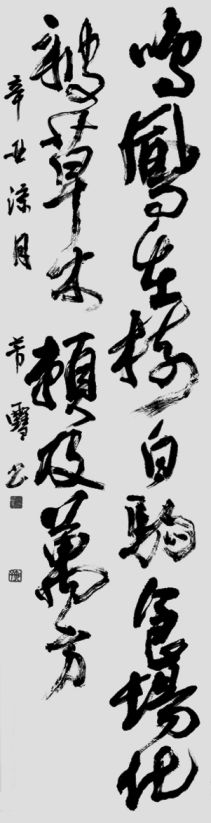 鳴鳳在樹白駒食場化
被草木賴及萬方
辛丑涼月 雪